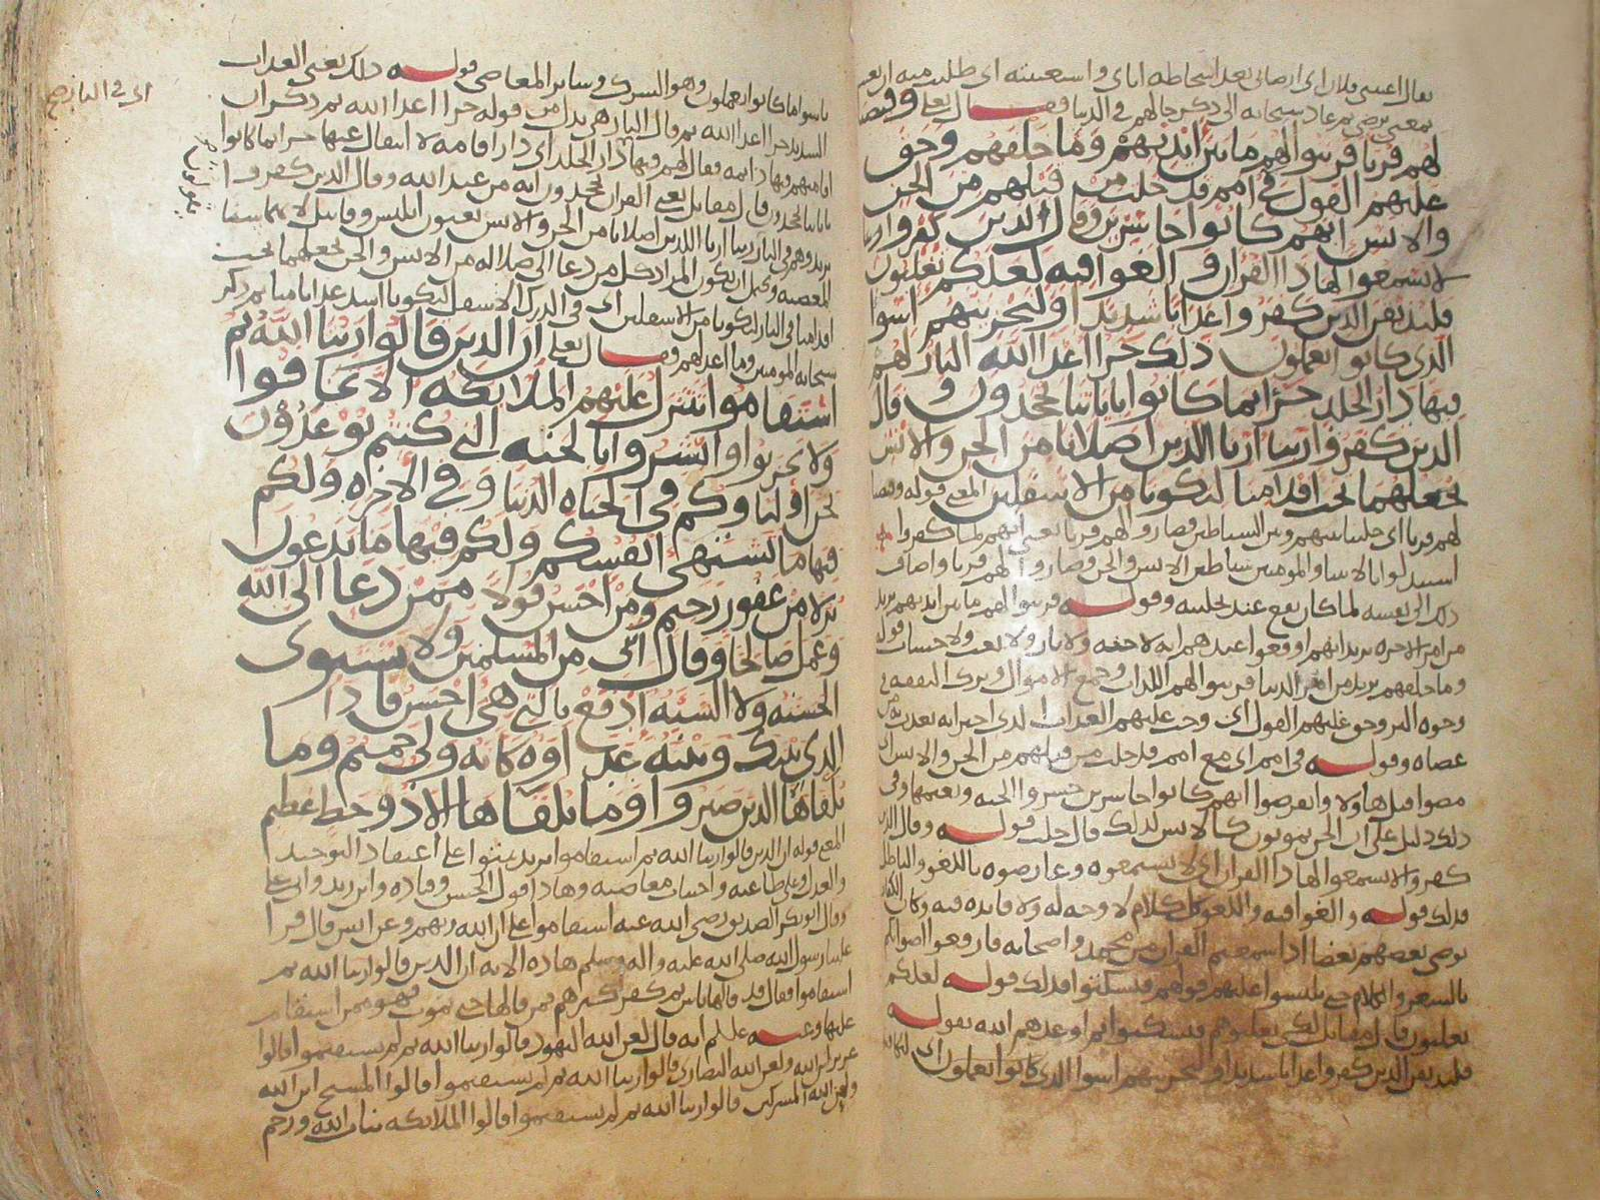 يقال اعتبني فلان اي ارضاني بعد اسخاطه اياي واستعتبته اي طلبت منه ان
بمعنى يرضى ثم عاد سبحانه الى ذكر حالهم في الدنيا فقال تعلى وقيضنا
لهم قرنا فزينوا لهم ما بين ايديهم وما خلفهم وحق
عليهم القول في امم قد خلت من قبلهم من الجن
والانس انهم كانوا خاسرين وقال الذين كفروا
لا تسمعوا لهاذا القران والغوا فيه لعلكم تغلبون
فلنذيقن الذين كفروا عذابا شديدا ولنجزينهم اسوا
الذي كانوا يعملون ذلك جزا اعدا الله النار لهم
فيها دار الخلد جزا بما كانوا باياتنا يجحدون وقال
الذين كفروا ربنا ارنا اللذين اضلانا من الجن والانس
نجعلهما تحت اقدامنا ليكونا من الاسفلين المعنى قوله وقيضنا
لهم قرنا اي خلينا بينهم وبين الشياطين فصاروا لهم قرنا يعني انهم لما كفروا
استبدلوا بالانبيا والمومنين شياطين الانس والجن وصاروا لهم قرنا واضاف
ذلك الى نفسه لما كان يقع عند تخليته وقوله فزينوا لهم ما بين ايديهم يريد
من امر الاخرة يريد انهم اوقعوا عندهم انه لا جنة ولا نار ولا بعث ولا حساب قوله
وما خلفهم يريد من امر الدنيا فزينوا لهم اللذات وجمع الاموال وترك النفقة في
وجوه البر وحق عليهم القول اي وجب عليهم العذاب الذي اخبر انه يعذب به من
عصاه وقوله في امم اي مع امم قد خلت من قبلهم من الجن والانس اي
مضوا قبل هاولا وانقرضوا انهم كانوا خاسرين خسروا الجنة ونعيمها وفي
ذلك دليل على ان الجن يموتون كالانس لذلك قال خلت قوله وقال الذين
كفروا لا تسمعوا لهاذا القران اي لا تستمعوه وعارضوه باللغو والباطل
فذلك قوله والغوا فيه واللغو كل كلام لا وجه له ولا فايدة فيه وكان الكفار
يوصي بعضهم بعضا اذا سمعتم القران من محمد واصحابه فارفعوا اصواتكم
بالشعر والكلام حتى تلبسوا عليهم قولهم فيسكتوا فذلك قوله لعلكم
تغلبون قال مقاتل لكي تغلبوهم فيسكتوا ثم اوعدهم الله بقوله
فلنذيقن الذين كفروا عذابا شديدا ولنجزينهم اسوا الذي كانوا يعملون اي
باسوا ما كانوا يعملون وهو الشرك وساير المعاصي قوله ذلك يعني العذاب
الشديد جزا اعدا الله ثم قال النار هي بدل من قوله جزا اعدا الله ثم ذكر ان
اقامتهم فيها دايمة فقال لهم فيها دار الخلد اي دار اقامة لا انتقال عنها جزا بما كانوا
باياتنا يجحدون قال مقاتل يعني القران يجحدون انه من عند الله وقال الذين كفروا
يريد وهم في النار ربنا ارنا اللذين اضلانا من الجن والانس يعنون ابليس وقابيل لانهما سنا
المعصية ويحتمل ان يكون المراد كل من دعا الى ضلالة من الانس والجن نجعلهما تحت
اقدامنا في النار ليكونا من الاسفلين اي في الدرك الاسفل ليكونا اشد عذابا منا ثم ذكر
سبحانه المومنين وما اعد لهم فقال تعلى ان الذين قالوا ربنا الله ثم
استقاموا تتنزل عليهم الملائكة الا تخافوا
ولا تحزنوا وابشروا بالجنة التي كنتم توعدون
نحن اولياؤكم في الحياة الدنيا وفي الاخرة ولكم
فيها ما تشتهي انفسكم ولكم فيها ما تدعون
نزلا من غفور رحيم ومن احسن قولا ممن دعا الى الله
وعمل صالحا وقال انني من المسلمين ولا تستوي
الحسنة ولا السيئة ادفع بالتي هي احسن فاذا
الذي بينك وبينه عداوة كانه ولي حميم وما
يلقاها الا الذين صبروا وما يلقاها الا ذو حظ عظيم
المعنى قوله ان الذين قالوا ربنا الله ثم استقاموا يريد ثبتوا على اعتقاد التوحيد
والعدل وعلى طاعته واجتناب معاصيه وهاذا قول الحسن وقتادة وابن زيد
وقال ابو بكر الصديق رضي الله عنه استقاموا على ان الله ربهم وعن انس قال قرا
علينا رسول الله صلى الله عليه واله وسلم هاذه الاية ان الذين قالوا ربنا الله ثم
استقاموا فقال قد قالها ناس ثم كفر اكثرهم فمن قالها حتى يموت فهو ممن استقام
عليها وعنه عليلم انه قال لعن الله اليهود قالوا ربنا الله ثم لم يستقيموا قالوا
عزير ابن الله ولعن الله النصارى قالوا ربنا الله ثم لم يستقيموا قالوا المسيح ابن الله
ولعن الله المشركين قالوا ربنا الله ثم لم يستقيموا قالوا الملائكة بنات الله ورحم